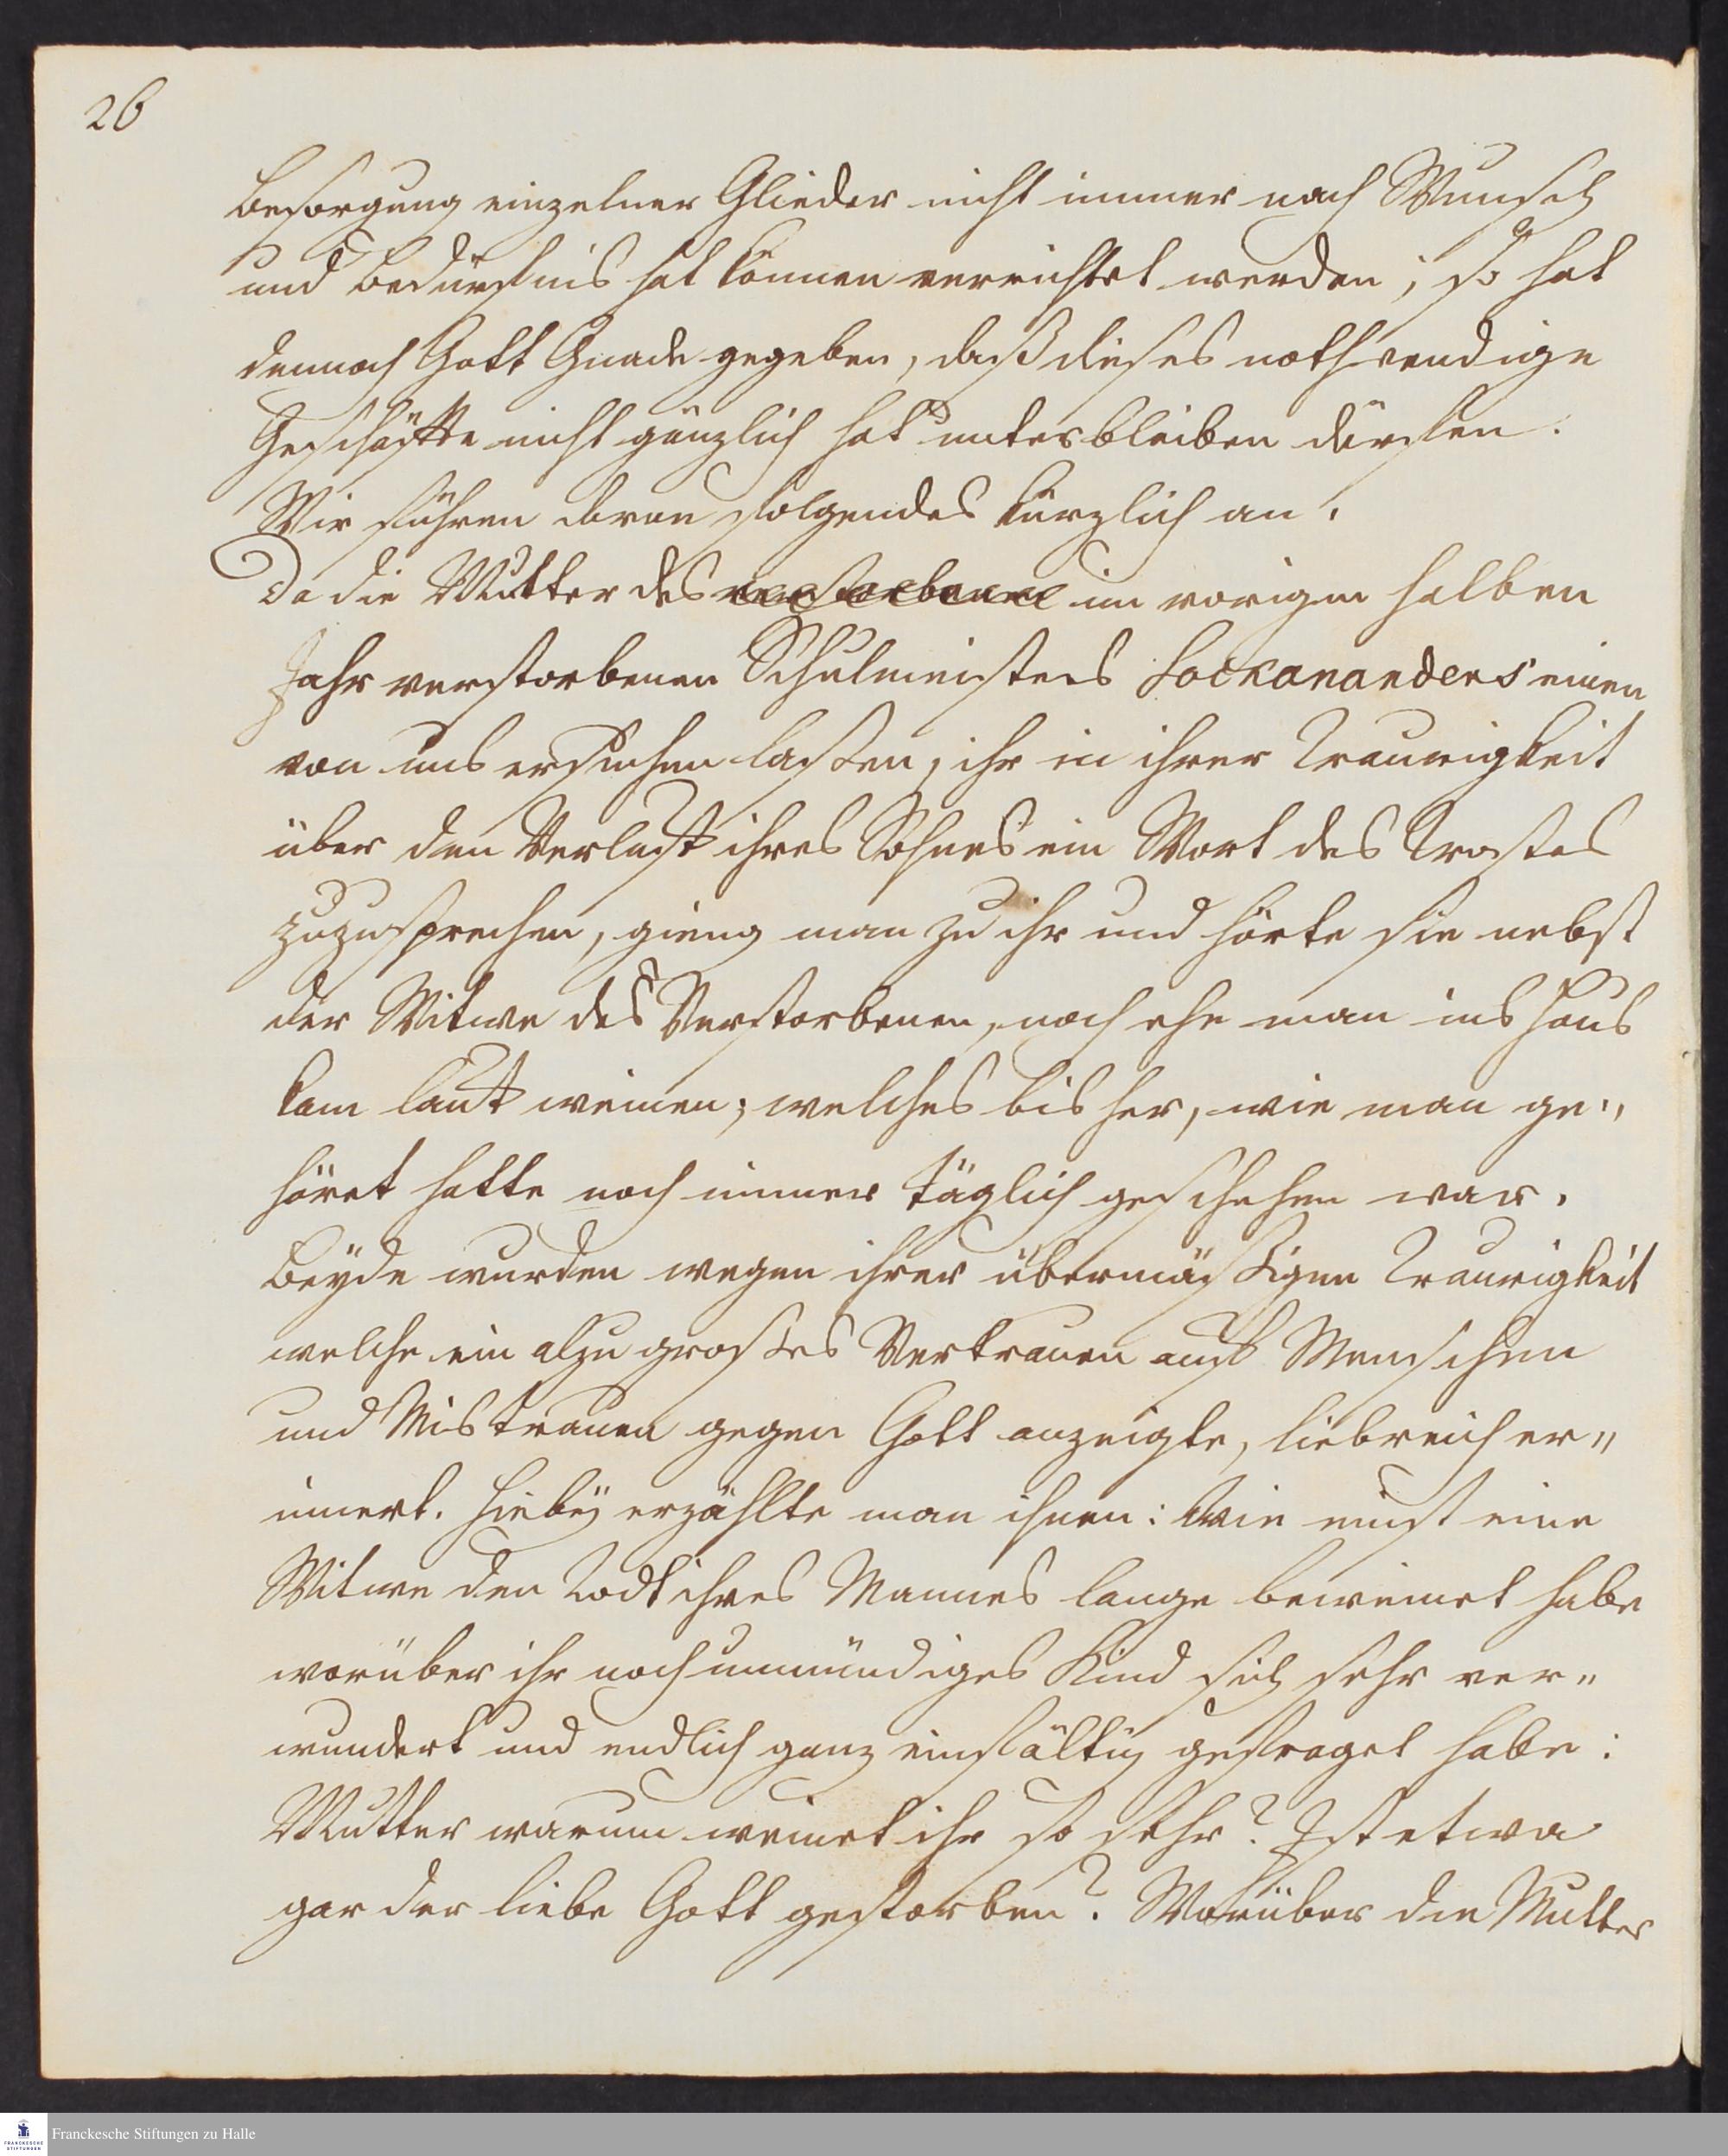 26
Besorgung einzelner Glieder nicht immer nach Wunsch
und Bedürfnis hat können verrichtet werden; so hat
dennoch Gott Gnade gegeben, daß dieses nothwendige
Geschäfte nicht gänzlich hat unterbleiben dürfen.
Wir führen davon folgendes kürzlich an.
Da die Mutter des verstorbenen im vorigen halben
Jahr verstorbenen Schulmeisters Sockananders einen
von uns ersuchen laßen, ihr in ihrer Traurigkeit
über den Verlust ihres Sohnes ein Wort des Trostes
zuzusprechen, gieng man zu ihr und hörte sie nebst
der Witwe des Verstorbenen, noch ehe man ins Haus
kam laut weinen; welches bisher, wie man ge„
höret hatte noch immer täglich geschehen war.
Beyde wurden wegen ihrer übermäßigen Traurigkeit
welche ein alzu großes Vertrauen auf Menschen
und Mistrauen gegen Gott anzeigte, liebreich er„
innert. Hiebey erzählte man ihnen: Wie einst eine
Witwe den Todt ihres Mannes lange beweinet habe
worüber ihr noch unmündiges Kind sich sehr ver„
wundert und endlich ganz einfältig gefraget habe:
Mutter warum weinet ihr so sehr? Ist etwa
gar der liebe Gott gestorben? Worüber die Mutter
FRANCKESCHE STIFTUNGEN
Franckesche Stiftungen zu Halle